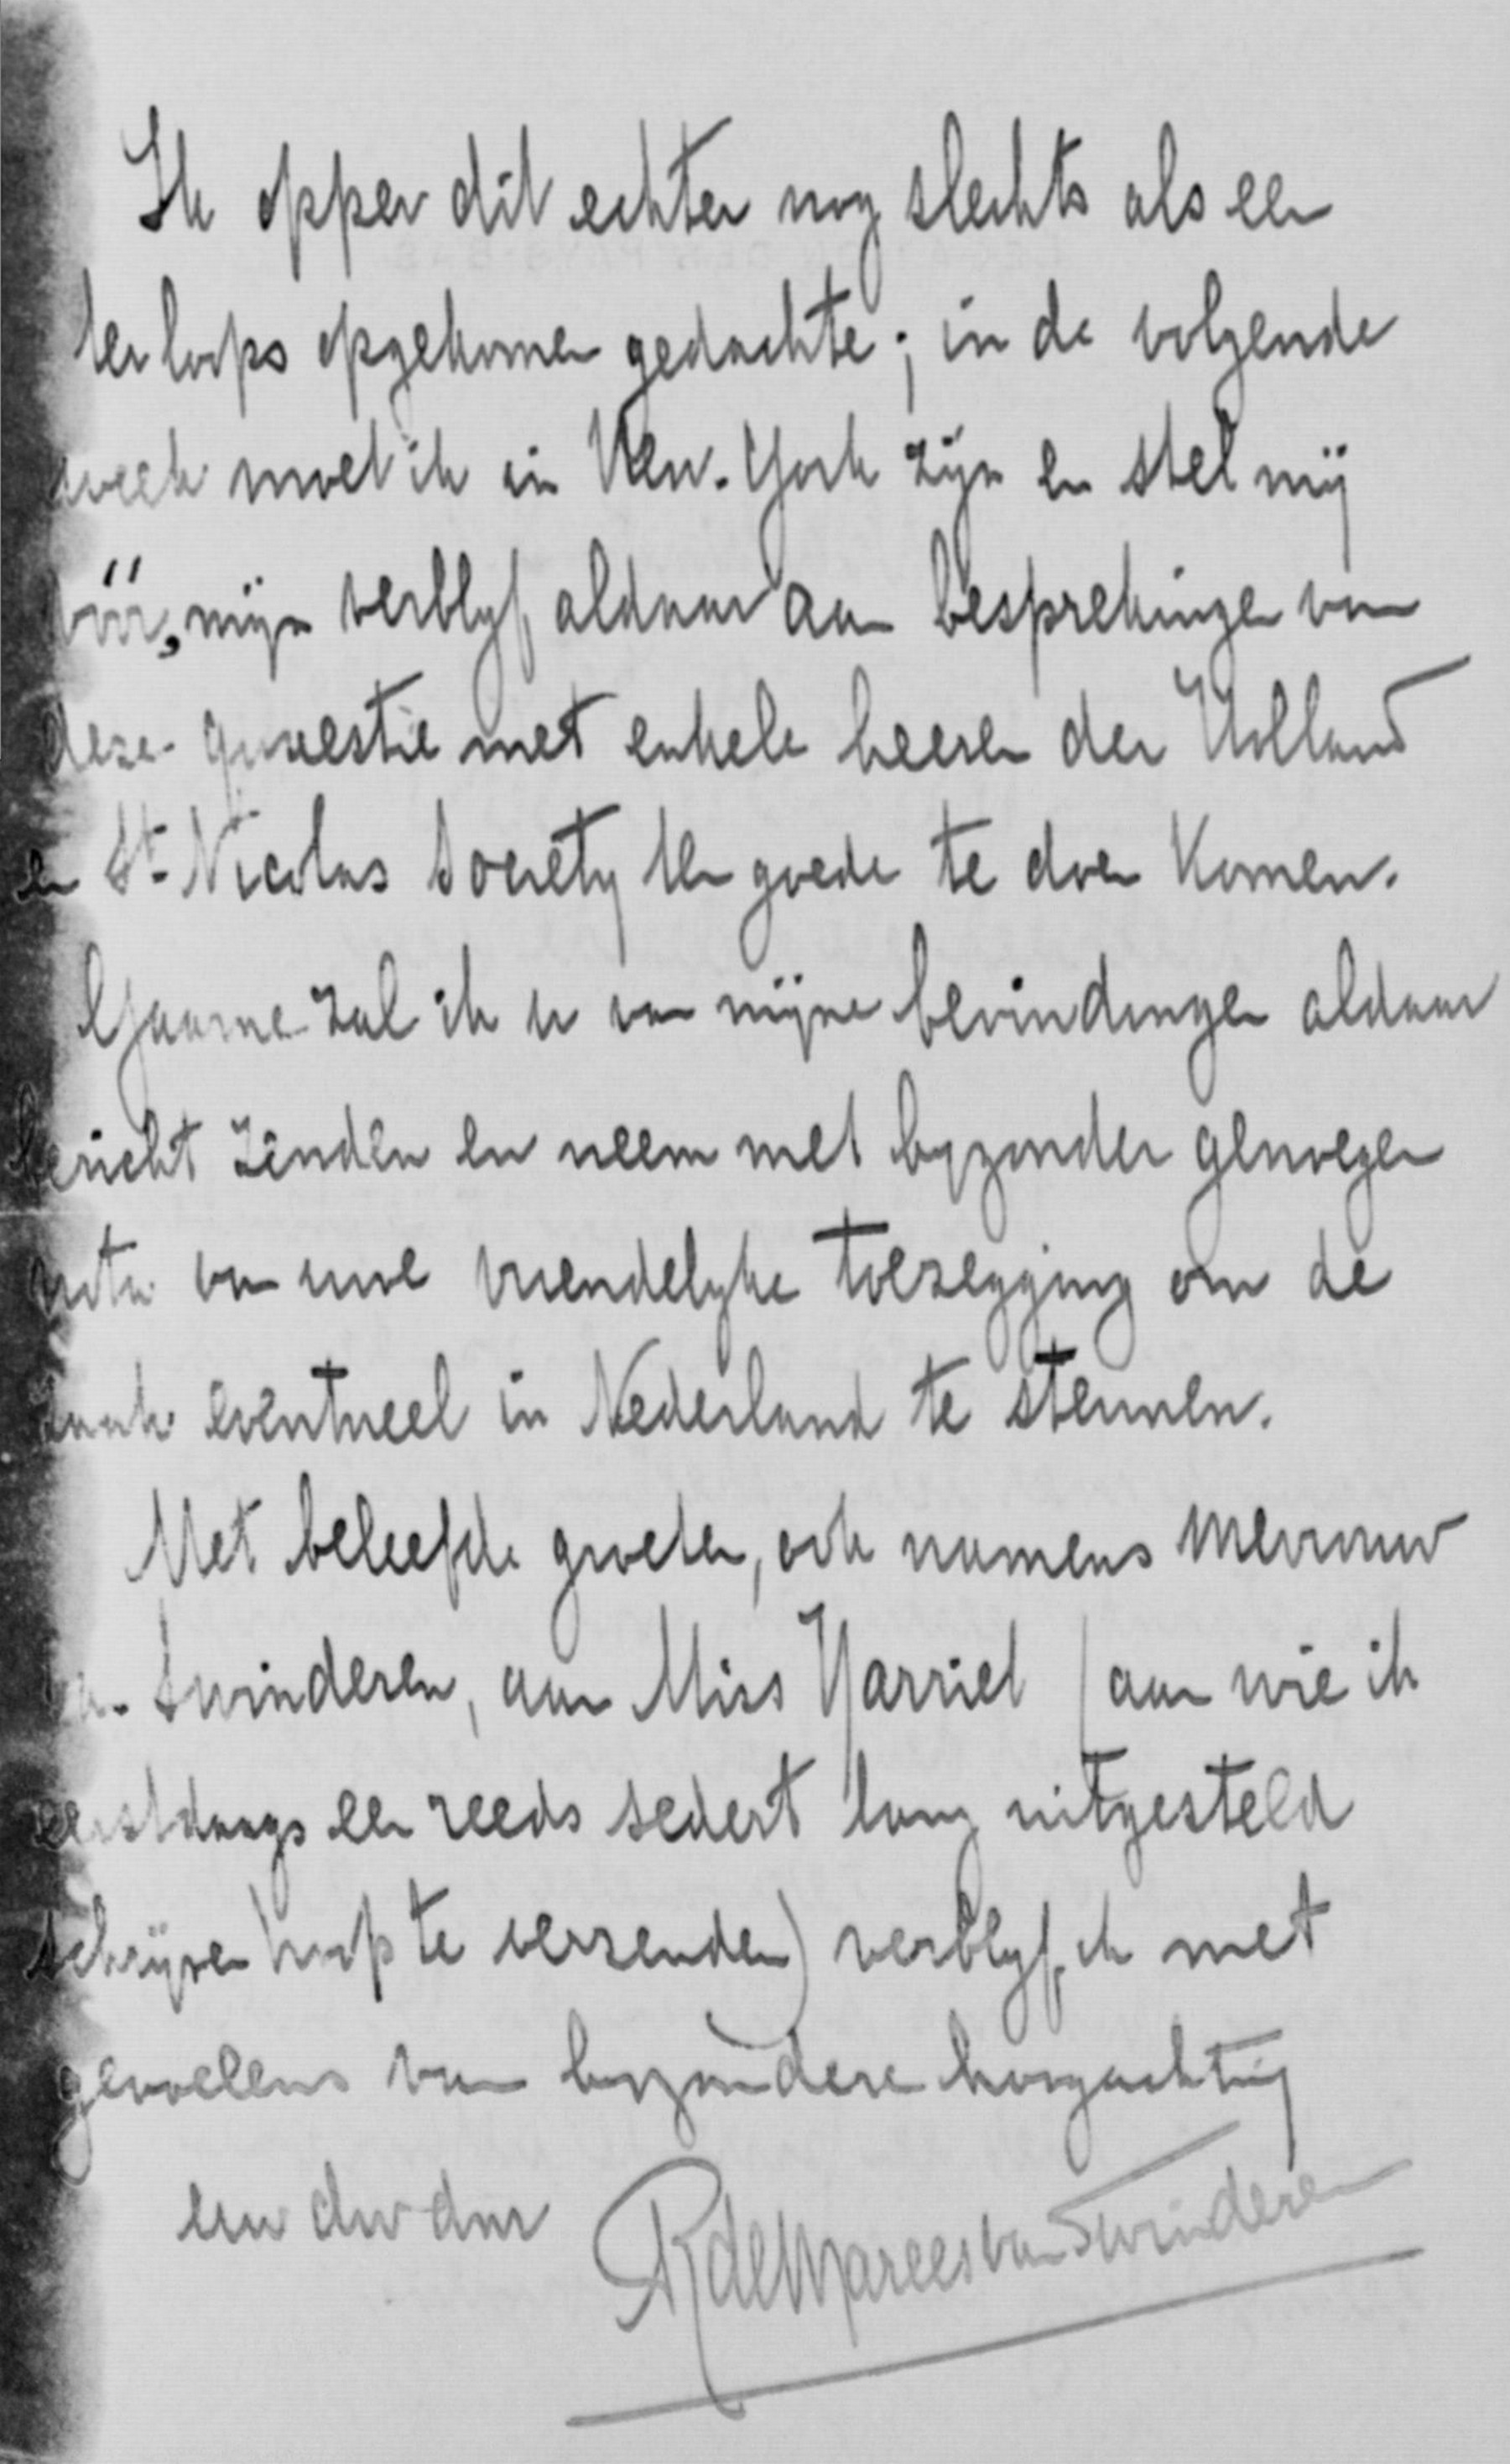 Ik opper dit echter nog slechts als een
terloops opgekomen gedachte; in de volgende
week moet ik in New-York zijn en stel mij
vóór, mijn verblijf aldaar aan besprekingen van
deze quaestie met enkele heeren der Holland
en St. Nicolas Society ten goede te doen komen.
Gaarne zal ik u van mijne bevindingen aldaar
bericht zenden en neem met byzonder genoegen
nota van uwe vriendelyke toezegging om de
zaak eventueel in Nederland te steunen.
Met beleefde groeten, ook namens Mevrouw
van Swinderen, aan Miss Harriet (aan wie ik
eerstdaags een reeds sedert lang uitgesteld
schrijven hoop te verzenden) verblyf ik met
gevoelens van byzondere hoogachting
uw dw dnr
RdeMareesvanSwinderen